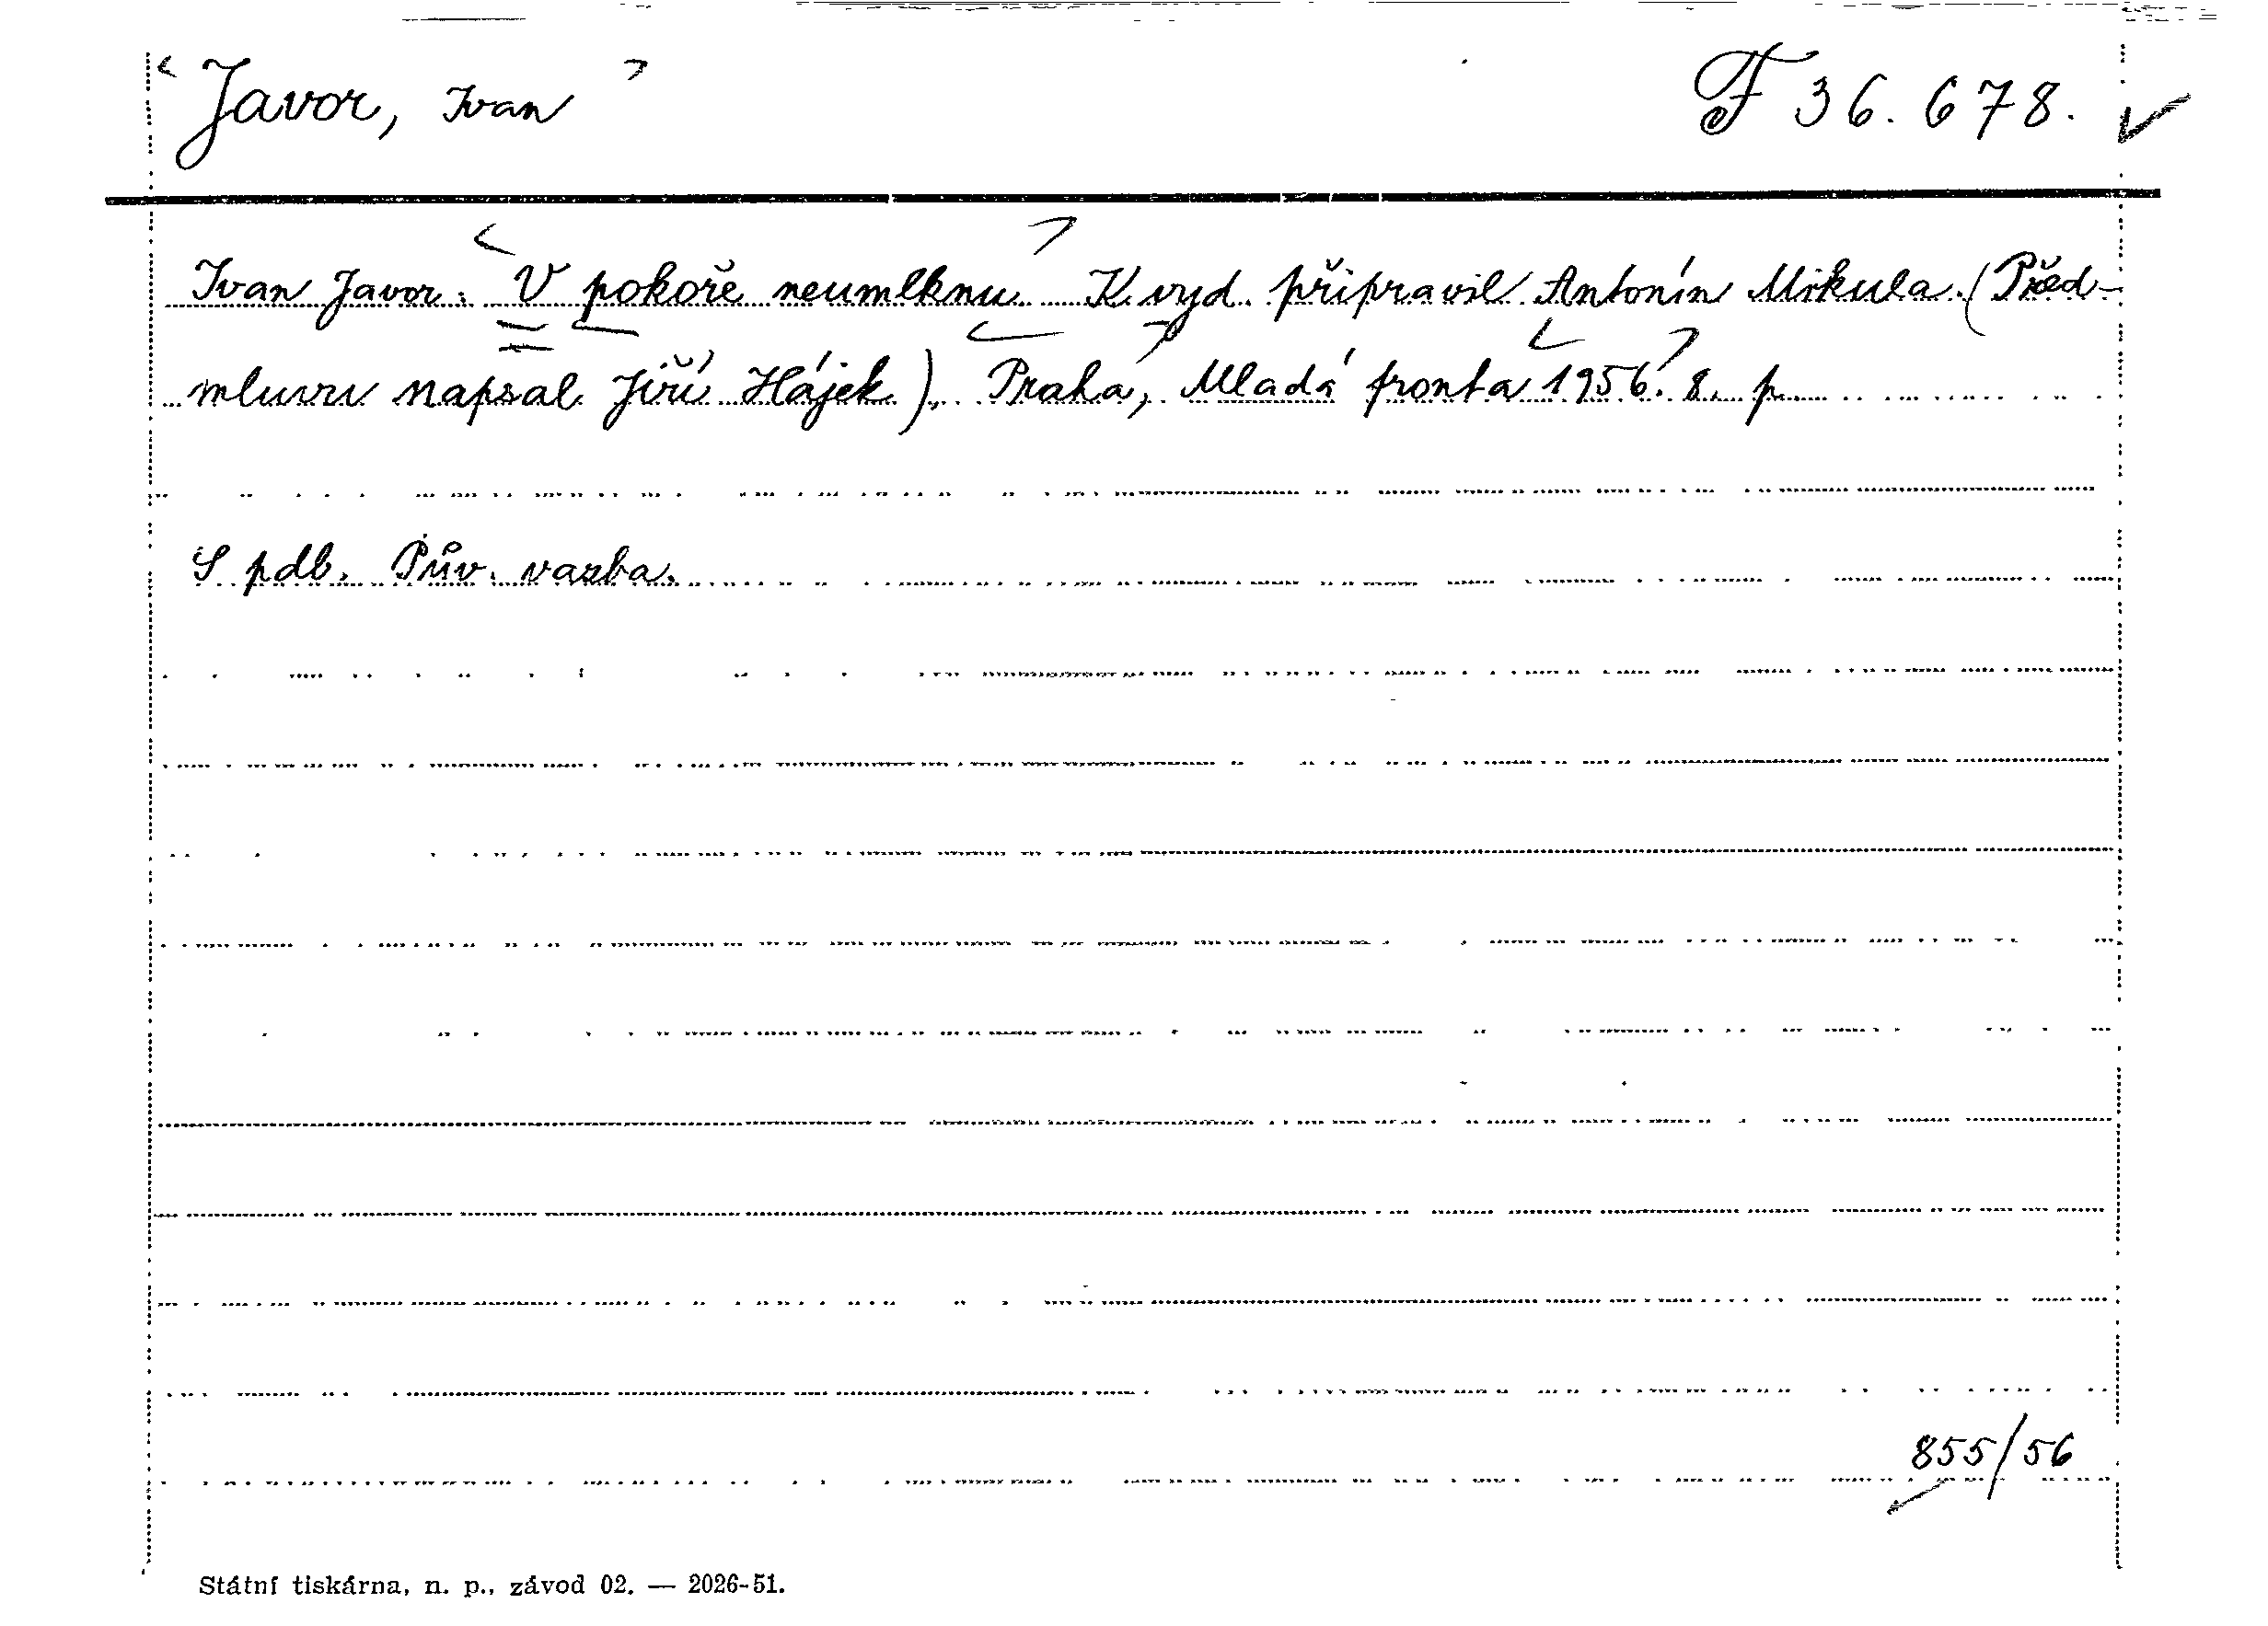 Javor, Ivan F 36.678.
Ivan Javor: V pokoře neumlknu K vyd. připravil Antonín Mikula. (Před-
mluvu napsal Jiří Hájek). Praha, Mladá fronta 1956. 8. p.
S pdb. Pův. vazba.
855/56
Státní tiskárna, n. p., závod 02. — 2026-51.